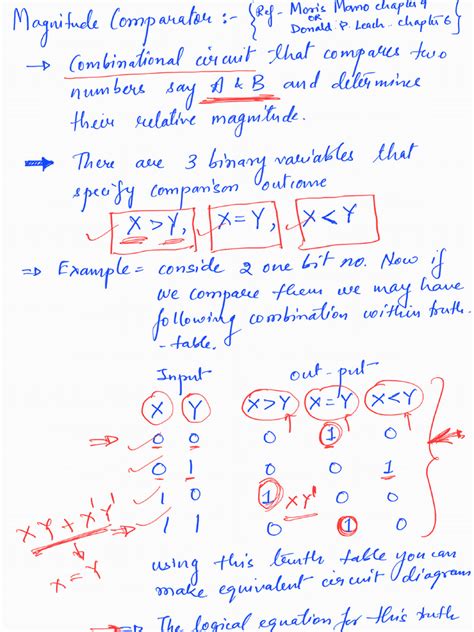 Magnitude Comparator :- { Ref - Morris Mano chapter 4
OR
Donald P Leach - chapter 6 }
→ Combinational circuit that compares two
numbers say A & B and determines
their relative magnitude.
→ There are 3 binary variables that
specify comparison outcome
X > Y, X = Y, X < Y
⇒ Example = conside 2 one bit no. Now if
we compare them we may have
following combination within truth
- table.
Input out-put
X Y X>Y X=Y X<Y
⇒ 0 0 0 1 0
0 1 0 0 1
1 0 1 XY' 0 0
1 1 0 1 0
XY + X'Y'
X = Y
using this truth table you can
make equivalent circuit diagram
⇒ The logical equation for this truth